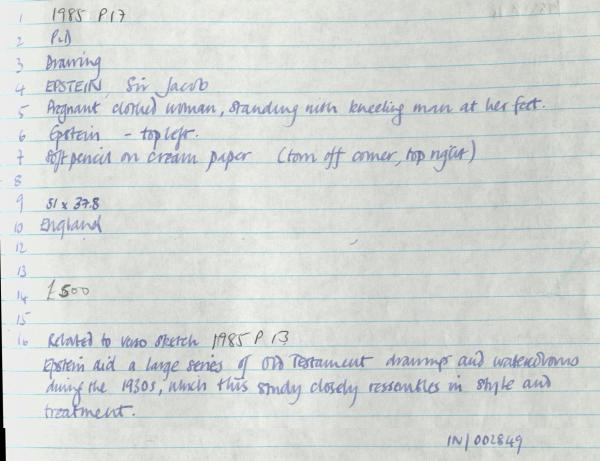 1 1985 P17
2 P&D
3 Drawing
4 EPSTEIN, Sir Jacob
5 Pregnant clothed woman, standing with kneeling man at her feet.
6 Epstein - top left.
7 Soft pencil on cream paper (torn off corner, top right)
8
9 51 x 37.8
10 England
12
13
14 £500
15
16 Related to verso sketch 1985 P 13
Epstein did a large series of Old Testament drawings and watercolours
during the 1930s, which this study closely resembles in style and
treatment.
IN/002849